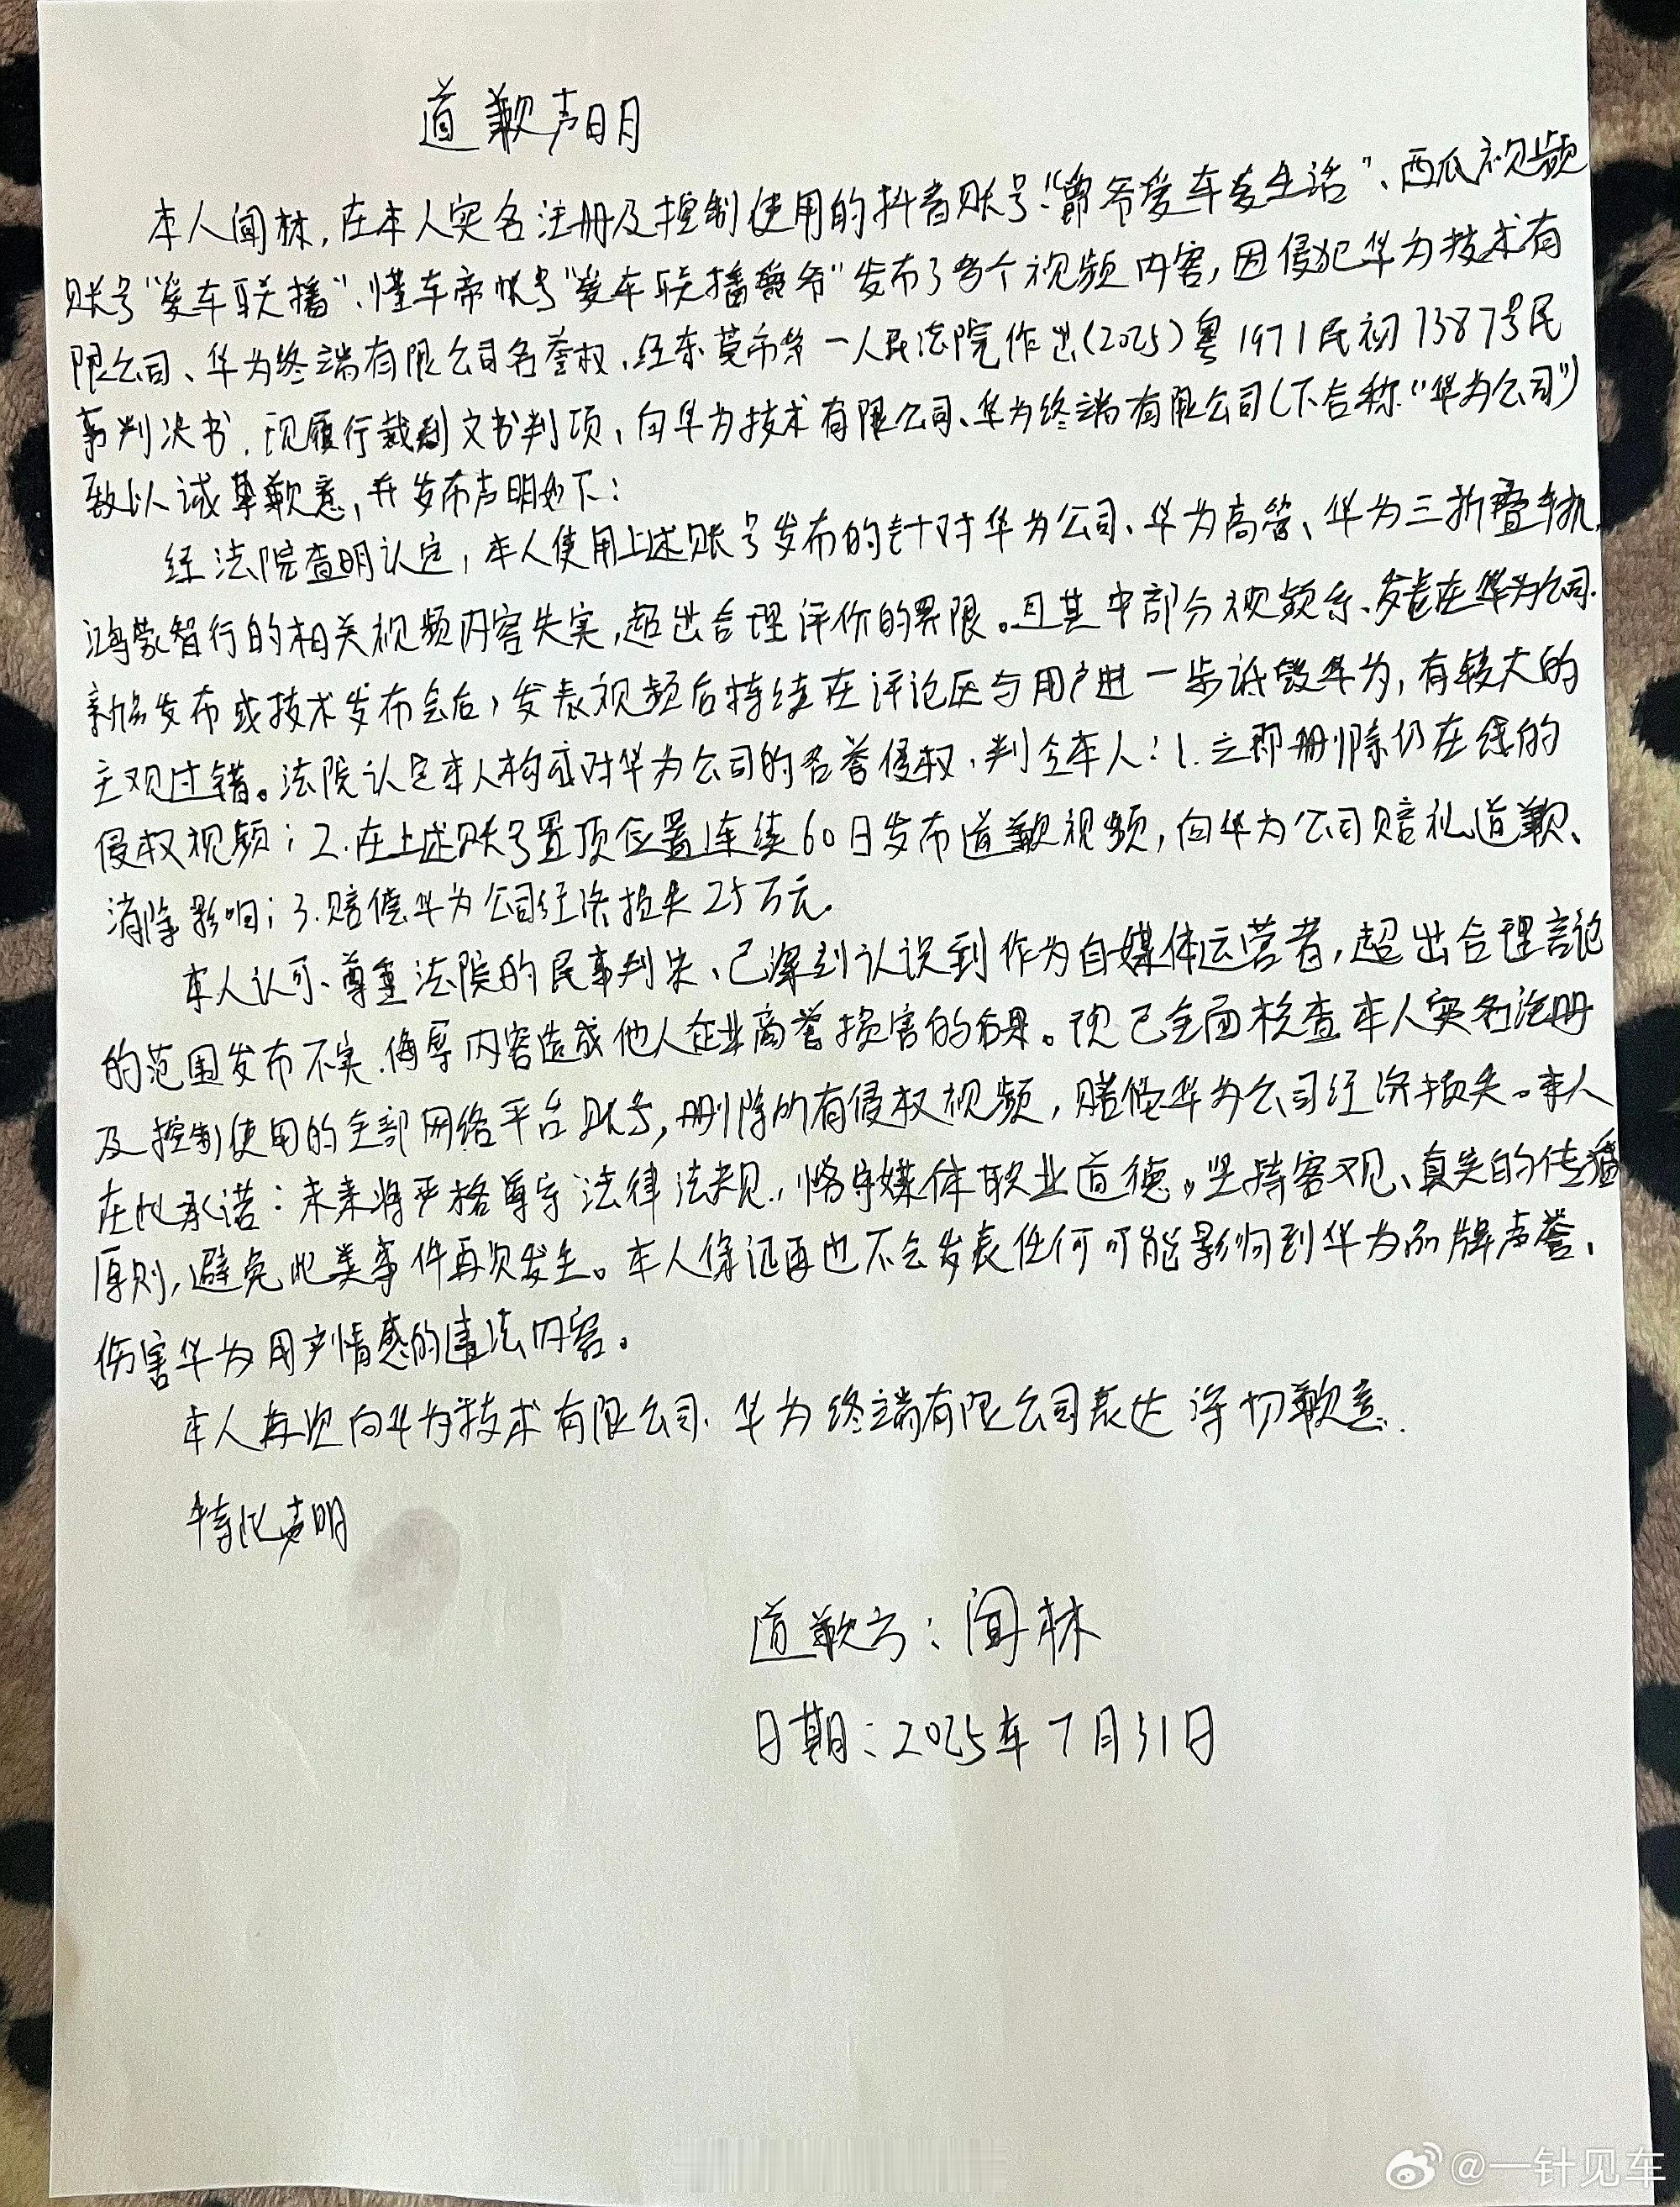 道歉声明
本人闻林,在本人实名注册及控制使用的抖音账号“爷爱车爱生活”、西瓜视频
账号“爱车联播”、懂车帝帐号“爱车联播爷”发布了多个视频内容,因侵犯华为技术有
限公司、华为终端有限公司名誉权,经东莞市第一人民法院作出(2025)粤1971民初13873号民
事判决书,现履行裁判文书判项,向华为技术有限公司、华为终端有限公司(下合称“华为公司”)
致以诚挚歉意,并发布声明如下:
经法院查明认定,本人使用上述账号发布的针对华为公司、华为高管、华为三折叠手机、
鸿蒙智行的相关视频内容失实,超出合理评价的界限。且其中部分视频系发表在华为公司
新品发布或技术发布会后,发表视频后持续在评论区与用户进一步诋毁华为,有较大的
主观过错。法院认定本人构成对华为公司的名誉侵权,判令本人:1.立即删除仍在线的
侵权视频;2.在上述账号置顶位置连续60日发布道歉视频,向华为公司赔礼道歉、
消除影响;3.赔偿华为公司经济损失25万元。
本人认可、尊重法院的民事判决、已深刻认识到作为自媒体运营者,超出合理言论
的范围发布不实、侮辱内容造成他人企业商誉损害的后果。现已全面核查本人实名注册
及控制使用的全部网络平台账号,删除所有侵权视频,赔偿华为公司经济损失。本人
在此承诺:未来将严格遵守法律法规,恪守媒体职业道德。坚持客观、真实的传播
原则,避免此类事件再次发生。本人保证再也不会发表任何可能影响到华为品牌声誉、
伤害华为用户情感的违法内容。
本人再次向华为技术有限公司、华为终端有限公司表达深切歉意.
特此声明
道歉方:闻林
日期:2025年7月31日
@一针见车